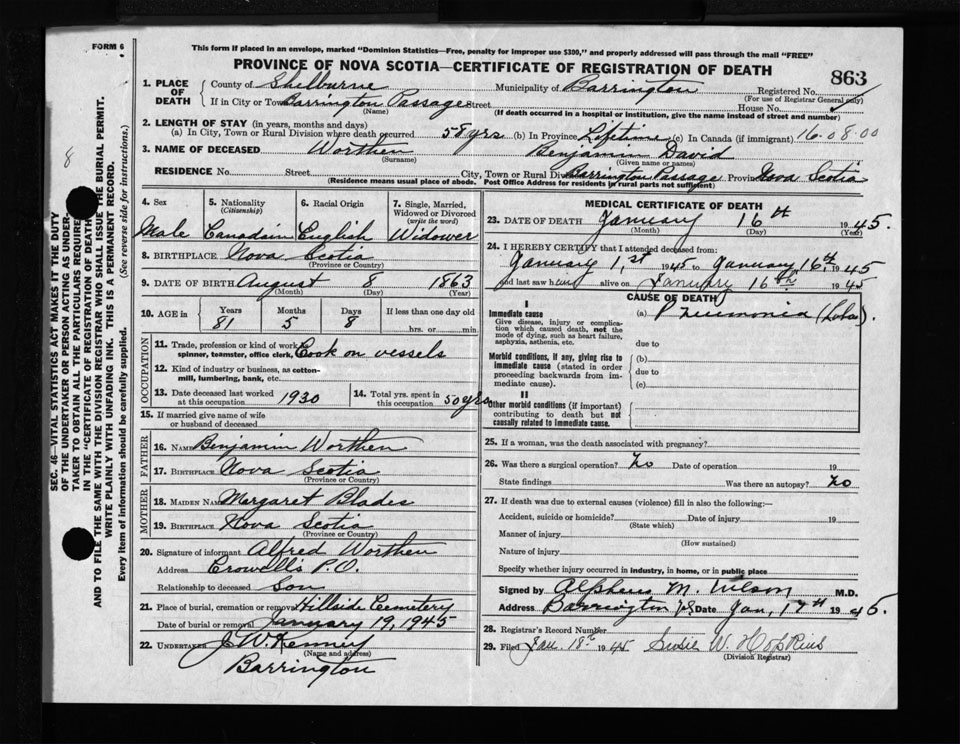 FORM 6
This form if placed in an envelope, marked "Dominion Statistics—Free, penalty for improper use $300," and properly addressed will pass through the mail "FREE"
PROVINCE OF NOVA SCOTIA—CERTIFICATE OF REGISTRATION OF DEATH
863
1. PLACE OF DEATH
County of Shelburne Municipality of Barrington Registered No.
(For use of Registrar General only)
If in City or Town Barrington Passage Street House No.
(Name) (If death occurred in a hospital or institution, give the name instead of street and number)
2. LENGTH OF STAY (in years, months and days)
(a) In City, Town or Rural Division where death occurred 58 yrs (b) In Province Lifetime (c) In Canada (if immigrant) 16-08-00
3. NAME OF DECEASED Worthen Benjamin David
(Surname) (Given name or names)
RESIDENCE No. Street City, Town or Rural Div Barrington Passage Province Nova Scotia
(Residence means usual place of abode. Post Office Address for residents in rural parts not sufficient)
4. Sex
Male
5. Nationality
(Citizenship)
Canadain
6. Racial Origin
English
7. Single, Married, Widowed or Divorced
(write the word)
Widower
8. BIRTHPLACE Nova Scotia
(Province or Country)
9. DATE OF BIRTH August 8 1863
(Month) (Day) (Year)
10. AGE in
Years Months Days If less than one day old
81 5 8 hrs. or min.
OCCUPATION
11. Trade, profession or kind of work, spinner, teamster, office clerk, Cook on vessels
12. Kind of industry or business, as cotton-mill, lumbering, bank, etc.
13. Date deceased last worked at this occupation 1930
14. Total yrs. spent in this occupation 50 yrs
15. If married give name of wife or husband of deceased
FATHER
16. NAME Benjamin Worthen
17. BIRTHPLACE Nova Scotia
(Province or Country)
MOTHER
18. MAIDEN NAME Margaret Blades
19. BIRTHPLACE Nova Scotia
(Province or Country)
20. Signature of informant Alfred Worthen
Address Crowells P.O.
Relationship to deceased Son
21. Place of burial, cremation or removal Hillside Cemetery
Date of burial or removal January 19, 1945
22. UNDERTAKER J.W. Kenney
(Name and address)
Barrington
MEDICAL CERTIFICATE OF DEATH
23. DATE OF DEATH January 16th 1945.
(Month) (Day) (Year)
24. I HEREBY CERTIFY that I attended deceased from:
January 1,st 1945 to January 16th, 1945
and last saw him alive on January 16th 1945
CAUSE OF DEATH
I
Immediate cause (a) Pneumonia (Lobar).
Give disease, injury or complication which caused death, not the mode of dying, such as heart failure, asphyxia, asthenia, etc.
due to
Morbid conditions, if any, giving rise to immediate cause (stated in order proceeding backwards from immediate cause).
(b)
due to
(c)
II
Other morbid conditions (if important) contributing to death but not causally related to immediate cause.
25. If a woman, was the death associated with pregnancy?
26. Was there a surgical operation? No Date of operation 19
State findings Was there an autopsy? No
27. If death was due to external causes (violence) fill in also the following:—
Accident, suicide or homicide? Date of injury 19
(State which)
Manner of injury
(How sustained)
Nature of injury
Specify whether injury occurred in industry, in home, or in public place
Signed by Alpheus M. Wilson M.D.
Address Barrington NS Date Jan, 17th 1945.
28. Registrar's Record Number
29. Filed Jan. 18th 1945 Susie W. Hopkins
(Division Registrar)
8
SEC. 46—VITAL STATISTICS ACT MAKES IT THE DUTY
OF THE UNDERTAKER OR PERSON ACTING AS UNDER-
TAKER TO OBTAIN ALL THE PARTICULARS REQUIRED
IN THE "CERTIFICATE OF REGISTRATION OF DEATH"
AND TO FILE THE SAME WITH THE DIVISION REGISTRAR WHO SHALL ISSUE THE BURIAL PERMIT.
WRITE PLAINLY WITH UNFADING INK. THIS IS A PERMANENT RECORD.
Every item of information should be carefully supplied. (See reverse side for instructions.)